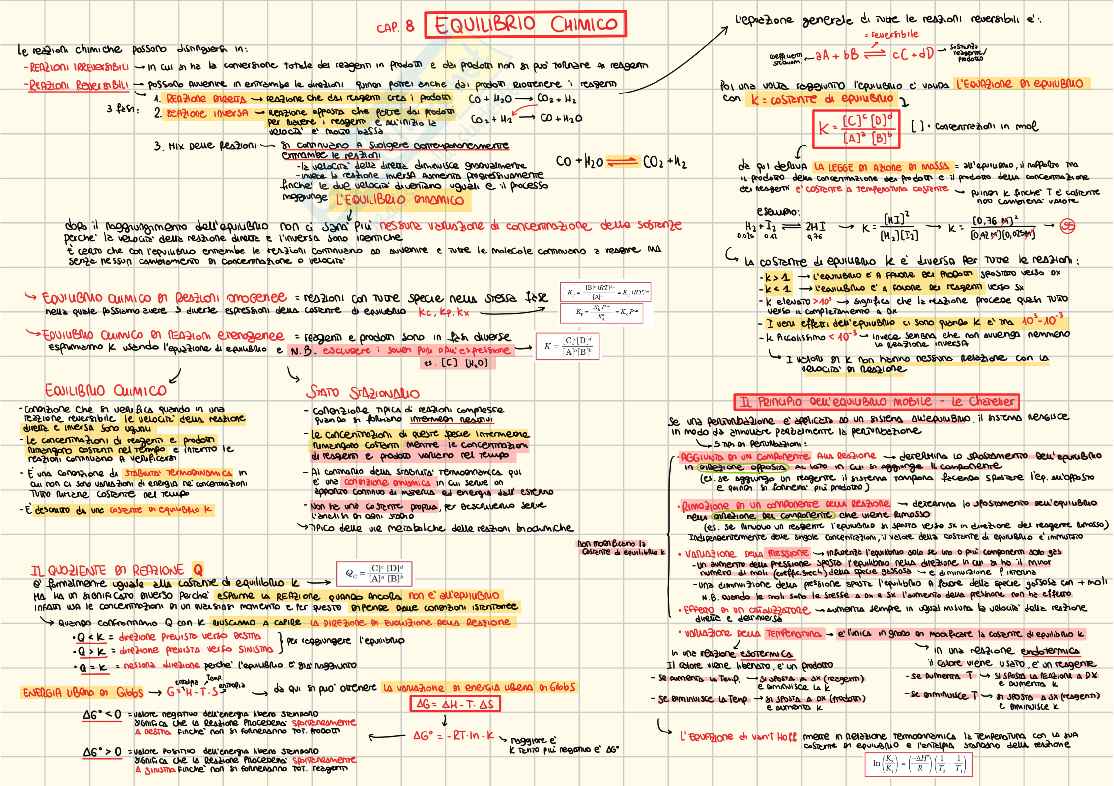 CAP. 8 EQUILIBRIO CHIMICO
Le reazioni chimiche possono distinguersi in:
- REAZIONI IRREVERSIBILI → in cui si ha la conversione totale dei reagenti in prodotti e dai prodotti non si può tornare ai reagenti
- REAZIONI REVERSIBILI → possono avvenire in entrambe le direzioni quindi potrei anche dai prodotti riottenere i reagenti
3 fasi:
1. REAZIONE DIRETTA → reazione che dai reagenti crea i prodotti CO + H₂O → CO₂ + H₂
2. REAZIONE INVERSA → reazione opposta che parte dai prodotti
per riavere i reagenti e all'inizio la
velocità è molto bassa
CO₂ + H₂ → CO + H₂O
3. Mix delle reazioni → si continuano a svolgere contemporaneamente
entrambe le reazioni
- la velocità della diretta diminuisce gradualmente
- invece la reazione inversa aumenta progressivamente
finché le due velocità diventano uguali e il processo
raggiunge L'EQUILIBRIO DINAMICO
CO + H₂O ⇌ CO₂ + H₂
dopo il raggiungimento dell'equilibrio non ci sarà più nessuna variazione di concentrazione delle sostanze
perché la velocità della reazione diretta e l'inversa sono identiche
è certo che con l'equilibrio entrambe le reazioni continuano ad avvenire e tutte le molecole continuano a reagire ma
senza nessun cambiamento di concentrazione o velocità
↪ EQUILIBRIO CHIMICO DI REAZIONI OMOGENEE = reazioni con tutte specie nella stessa fase
nella quale possiamo avere 3 diverse espressioni della costante di equilibrio Kc, Kp, Kx
↪ EQUILIBRIO CHIMICO DI REAZIONI ETEROGENEE = reagenti e prodotti sono in fasi diverse
esprimiamo K usando l'equazione di equilibrio e N.B. escludere i solidi puri dall'espressione
es. [C] [H₂O]
K = [C]ᶜ[D]ᵈ / [A]ᵃ[B]ᵇ
EQUILIBRIO CHIMICO
- Condizione che si verifica quando in una
reazione reversibile le velocità della reazione
diretta e inversa sono uguali
- le concentrazioni di reagenti e prodotti
rimangono costanti nel tempo e intanto le
reazioni continuano a verificarsi
- È una condizione di stabilità termodinamica in
cui non ci sono variazioni di energia né concentrazioni
tutto rimane costante nel tempo
- È descritto da una costante di equilibrio K
STATO STAZIONARIO
- condizione tipica di reazioni complesse
quando si formano intermedi reattivi
- le concentrazioni di queste specie intermedie
rimangono costanti mentre le concentrazioni
di reagenti e prodotti variano nel tempo
- Al contrario della stabilità termodinamica qui
è una condizione dinamica in cui serve un
apporto continuo di materia ed energia dall'esterno
- Non ha una costante propria, per descriverlo serve
l'analisi di ogni stadio
→ Tipico delle vie metaboliche delle reazioni biochimiche
IL QUOZIENTE DI REAZIONE Q
è formalmente uguale alla costante di equilibrio K →
Q꜀ = [C]ᶜ[D]ᵈ / [A]ᵃ[B]ᵇ
ma ha un significato diverso perché esprime la reazione quando ancora non è all'equilibrio
infatti usa le concentrazioni di un qualsiasi momento e per questo dipende dalle condizioni istantanee
↪ quando confrontiamo Q con K riusciamo a capire la direzione di evoluzione della reazione
• Q < K = direzione prevista verso destra
• Q > K = direzione prevista verso sinistra
} per raggiungere l'equilibrio
• Q = K = nessuna direzione perché l'equilibrio è già raggiunto
ENERGIA LIBERA DI GIBBS → G = H - T · S
entalpia Temp. entropia
→ da qui si può ottenere la variazione di energia libera di Gibbs
ΔG = ΔH - T · ΔS
ΔG° < 0 = valore negativo dell'energia libera standard
significa che la reazione procederà spontaneamente
a destra finché non si formeranno tot. prodotti
ΔG° = -RT · ln · K
→ maggiore è
K tanto più negativo è ΔG°
ΔG° > 0 = valore positivo dell'energia libera standard
significa che la reazione procederà spontaneamente
a sinistra finché non si formeranno tot. reagenti
L'equazione generale di tutte le reazioni reversibili è:
= reversibile
coefficienti stechiom. aA + bB ⇌ cC + dD → sostanza reagente/prodotto
Poi una volta raggiunto l'equilibrio è valida L'EQUAZIONE DI EQUILIBRIO
con K = costante di equilibrio
K = [C]ᶜ [D]ᵈ / [A]ᵃ [B]ᵇ
[ ] = concentrazioni in mol
da qui deriva LA LEGGE DI AZIONE DI MASSA = all'equilibrio, il rapporto tra
il prodotto della concentrazione dei prodotti e il prodotto della concentrazione
dei reagenti è costante a temperatura costante → quindi K finché T è costante
non cambierà valore
esempio:
H₂ + I₂ ⇌ 2HI → K = [HI]² / [H₂][I₂] → K =
↪ la costante di equilibrio K è diversa per tutte le reazioni:
- K > 1 → l'equilibrio è a favore dei prodotti spostato verso dx
- K < 1 → l'equilibrio è a favore dei reagenti verso sx
- K elevato > 10³ → significa che la reazione procede quasi tutto
verso il completamento a dx
- I veri effetti dell'equilibrio ci sono quando K è tra 10³ - 10⁻³
- K piccolissimo < 10⁻³ → invece sembra che non avvenga nemmeno
la reazione inversa
↪ I valori di K non hanno nessuna relazione con la
velocità di reazione
IL PRINCIPIO DELL'EQUILIBRIO MOBILE - Le Chatelier
Se una perturbazione è applicata ad un sistema all'equilibrio, il sistema reagisce
in modo da annullare parzialmente la perturbazione
↪ 5 tipi di perturbazioni:
• AGGIUNTA DI UN COMPONENTE alla reazione → determina lo spostamento dell'equilibrio
in direzione opposta al lato in cui si aggiunge il componente
(es. se aggiungo un reagente il sistema tampona facendo spostare l'eq. all'opposto
e quindi si formerà più prodotto)
• RIMOZIONE DI UN COMPONENTE della REAZIONE → determina lo spostamento dell'equilibrio
nella direzione del componente che viene rimosso
(es. se rimuovo un reagente l'equilibrio si sposta verso sx in direzione del reagente rimosso)
Indipendentemente dalle singole concentrazioni, il valore della costante di equilibrio è immutato
Non modificano la
costante di equilibrio K
• VARIAZIONE della PRESSIONE → influenza l'equilibrio solo se uno o più componenti sono gas
- un aumento della pressione sposta l'equilibrio nella direzione in cui si ha il minor
numero di moli (coeff.stech.) della specie gassosa → e diminuzione l'interna
- una diminuzione della pressione sposta l'equilibrio a favore della specie gassosa con + moli
N.B. quando le moli sono le stesse a dx e sx l'aumento della pressione non ha effetto
• EFFETTO DI UN CATALIZZATORE → aumenta sempre in ugual misura la velocità della reazione
diretta e dell'inversa
• VARIAZIONE della TEMPERATURA → è l'unica in grado di modificare la costante di equilibrio K
In una reazione esotermica
Il calore viene liberato, è un prodotto
- se aumenta la Temp. → si sposta a sx (reagenti)
e diminuisce la K
- se diminuisce la Temp. → si sposta a dx (prodotti)
e aumenta K
in una reazione endotermica
il calore viene usato, è un reagente
- se aumenta T → si sposta la reazione a dx
e aumenta K
- se diminuisce T → si sposta a sx (reagenti)
e diminuisce K
↪ L'EQUAZIONE DI VAN'T HOFF mette in relazione termodinamica la temperatura con la sua
costante di equilibrio e l'entalpia standard della reazione
ln(K₂/K₁) = (-ΔH°/R) (1/T₂ - 1/T₁)